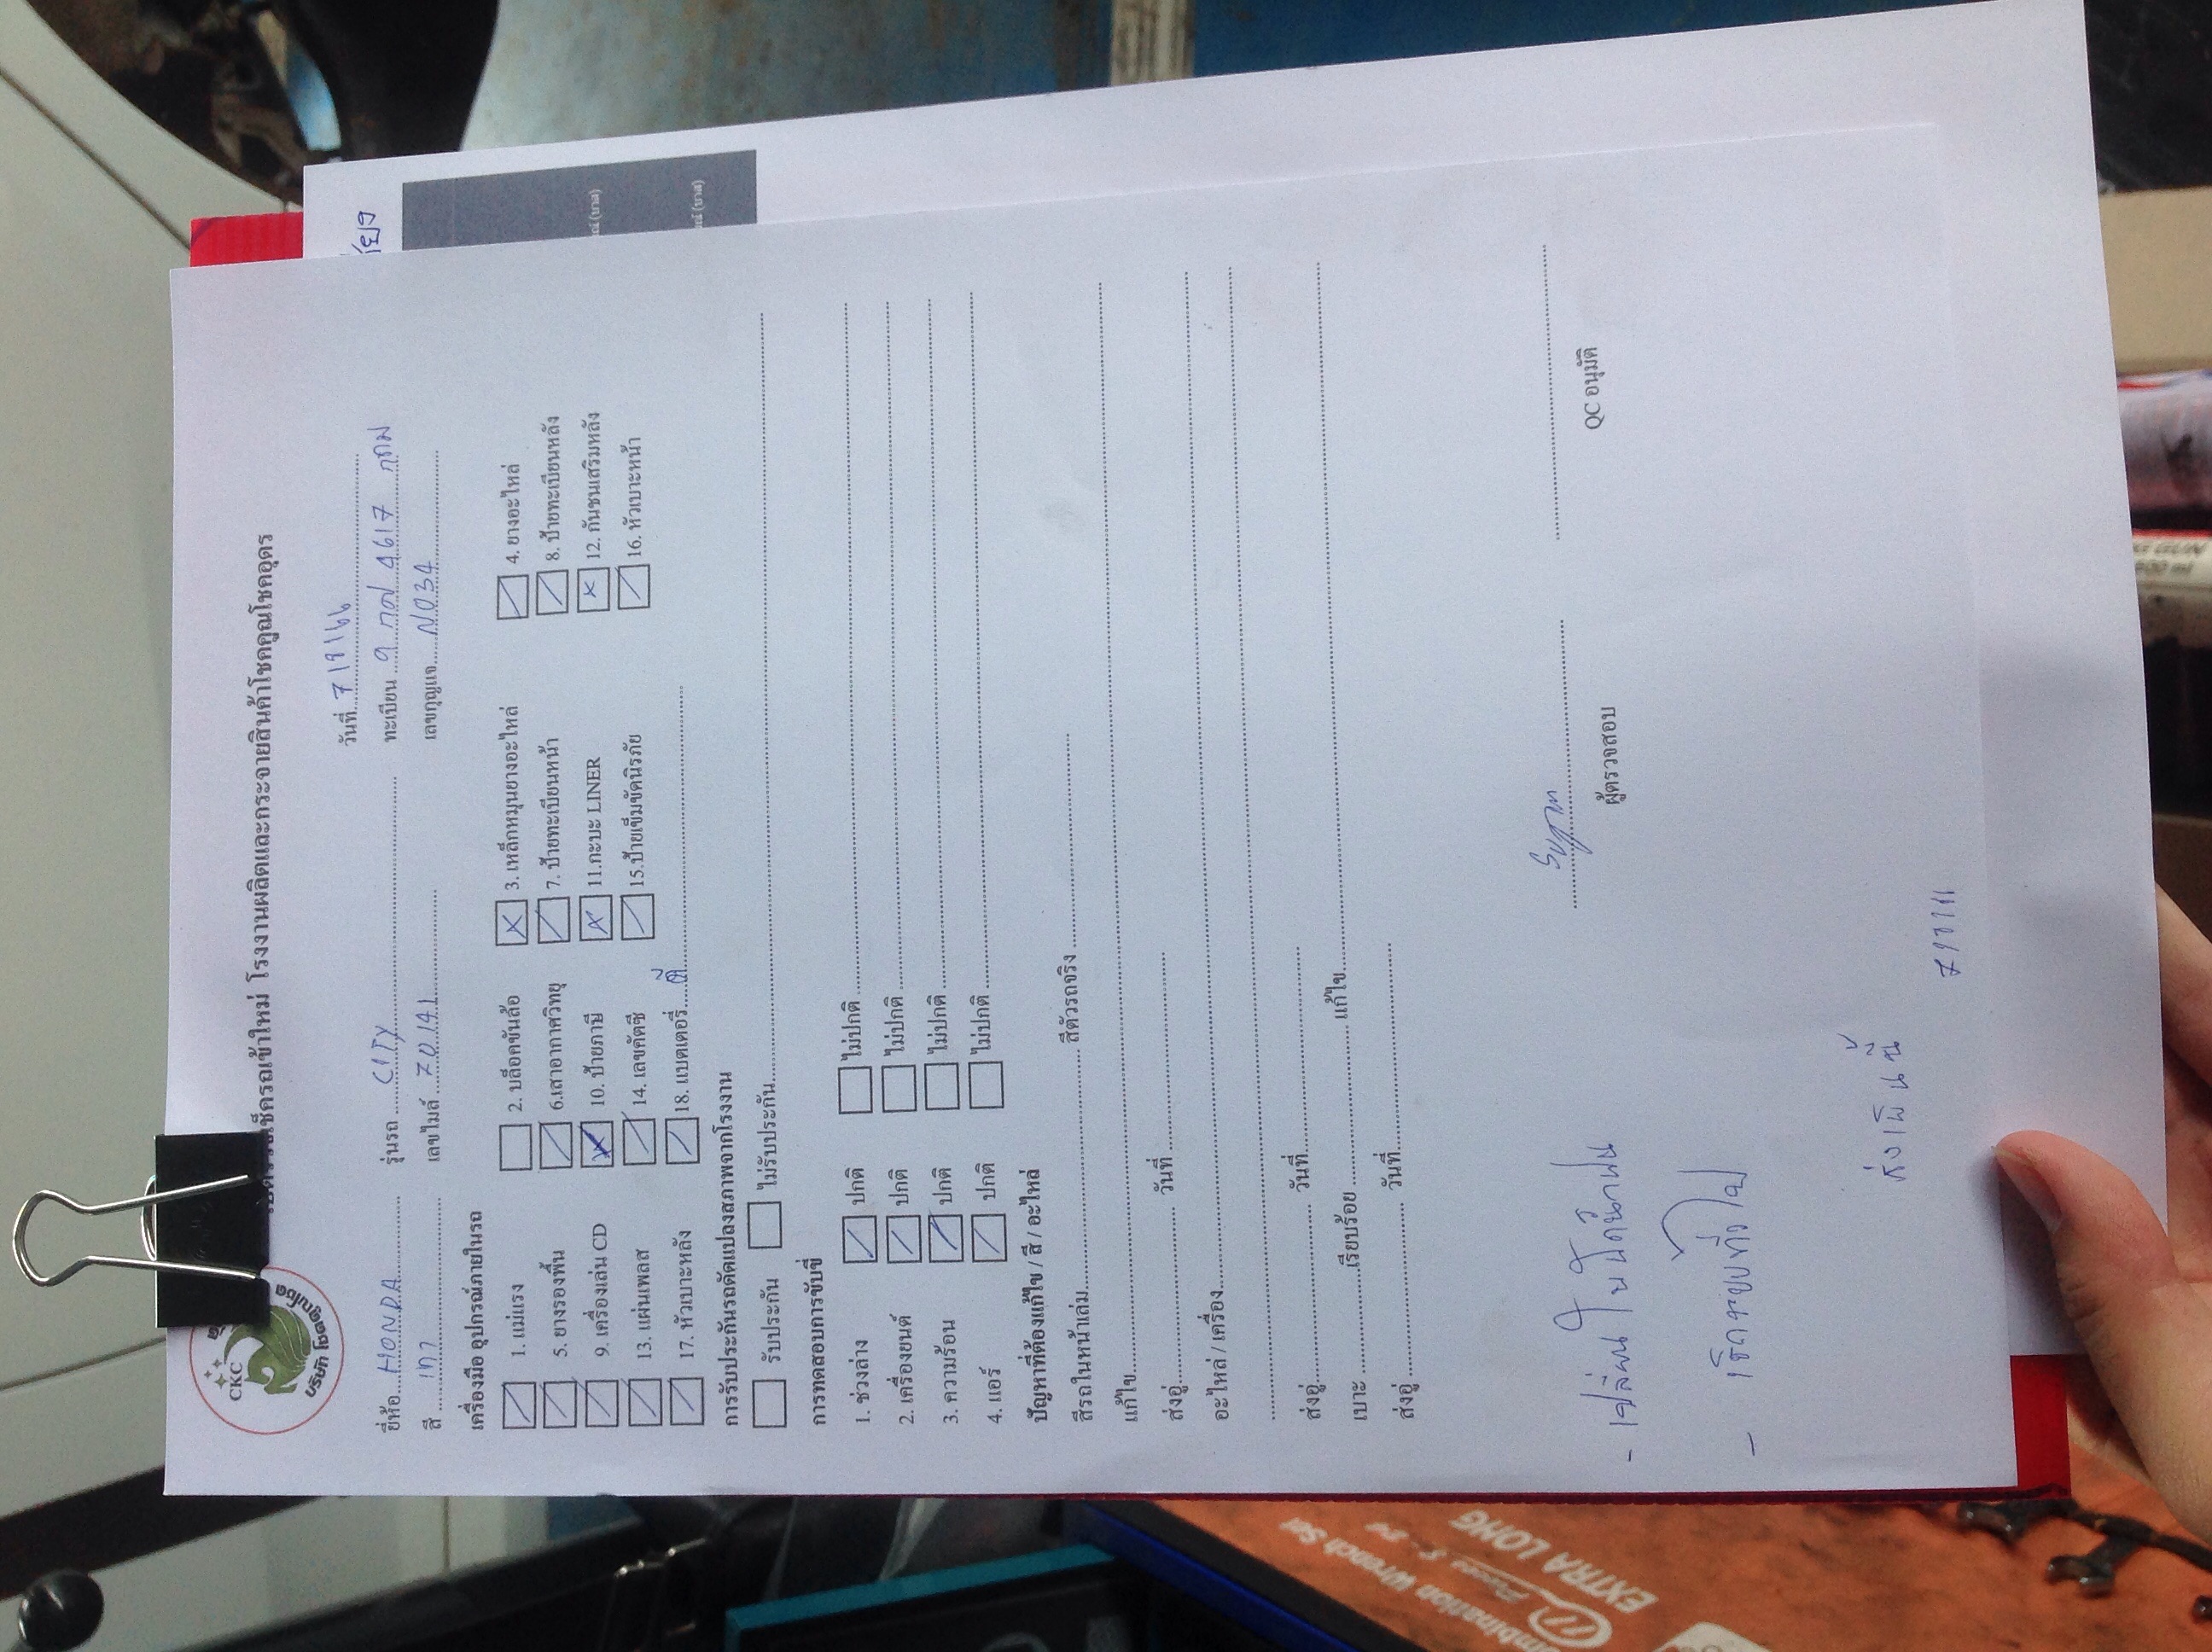 CKC
บริษัท โชคคูณโชค
เช็ครถเข้าใหม่ โรงงานผลิตและกระจายสินค้าโชคคูณโชคอุดร
วันที่ 7/8/66
ยี่ห้อ HONDA รุ่นรถ CITY ทะเบียน 9 กญ 4617 กทม
สี เทา เลขไมล์ 70141 เลขกุญแจ N034
เครื่องมือ อุปกรณ์ภายในรถ
1. แม่แรง 2. บล็อคขันล้อ 3. เหล็กหมุนยางอะไหล่ 4. ยางอะไหล่
5. ยางรองพื้น 6.เสาอากาศวิทยุ 7. ป้ายทะเบียนหน้า 8. ป้ายทะเบียนหลัง
9. เครื่องเล่น CD 10. ป้ายภาษี 11.กะบะ LINER 12. กันชนเสริมหลัง
13. แผ่นเพลส 14. เลขคัตซี 15.ป้ายเข็มขัดนิรภัย 16. หัวเบาะหน้า
17. หัวเบาะหลัง 18. แบตเตอรี่
การรับประกันรถดัดแปลงสภาพจากโรงงาน
รับประกัน ไม่รับประกัน
การทดสอบการขับขี่
1. ช่วงล่าง ปกติ ไม่ปกติ
2. เครื่องยนต์ ปกติ ไม่ปกติ
3. ความร้อน ปกติ ไม่ปกติ
4. แอร์ ปกติ ไม่ปกติ
ปัญหาที่ต้องแก้ไข / สี / อะไหล่
สีรถในหน้าเล่ม สีตัวรถจริง
แก้ไข
ส่งอู่ วันที่
อะไหล่ / เครื่อง
ส่งอู่ วันที่
เบาะ เรียบร้อย แก้ไข
ส่งอู่ วันที่
ผู้ตรวจสอบ QC อนุมัติ
- เปลี่ยนใบปัดน้ำฝน
- เช็คระบบทั่วไป
Combination Wrench Set
EXTRA LONG